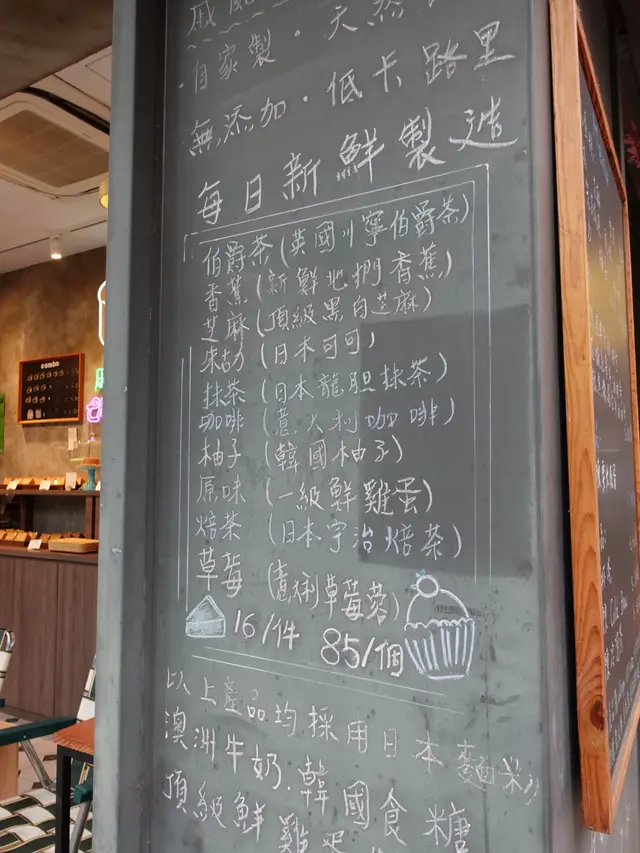 戚風
·自家製·天然·
無添加·低卡路里
每日新鮮製造
伯爵茶(英國川寧伯爵茶)
香蕉(新鮮地捫香蕉)
芝麻(頂級黑白芝麻)
朱古力(日本可可)
抹茶(日本龍胆抹茶)
咖啡(意大利咖啡)
柚子(韓國柚子)
原味(一級鮮雞蛋)
焙茶(日本宇治焙茶)
草莓(意大利草莓蓉)
16/件 85/個
以上產品均採用日本麵粉
澳洲牛奶.韓國食糖
頂級鮮雞蛋
combo